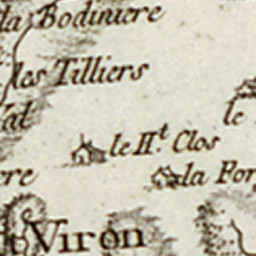 la Bodiniere
les Tilliers
Val
le
le H.t Clos
la For
Viron